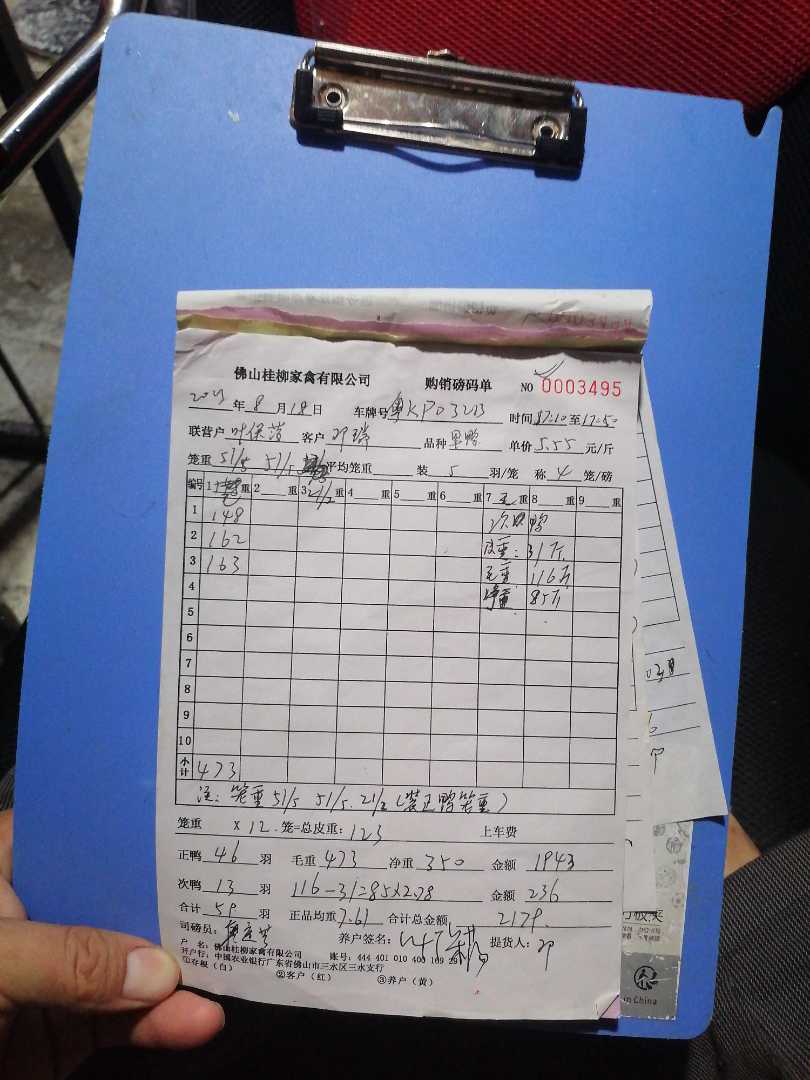 佛山桂柳家禽有限公司 购销磅码单 NO 0003495
年 8 月 18 日 车牌号 粤KP03213 时间 17:10 至 17:50
联营户 叶保洪 客户 邓 品种 单价 5.55 元/斤
笼重 51/5 51/5 平均笼重 装 5 羽/笼 称 4 笼/磅
编号 1 重 2 重 3 21/2 重 4 重 5 重 6 重 7 重 8 重 9 重
1 148 次 鸭
2 162 皮重: 31斤
3 163 毛重: 116斤
4 净重: 85斤
5
6
7
8
9
10
小计 473
注: 笼重 51/5 51/5. 21/2 (装正鸭笼重)
笼重 X 12. 笼=总皮重: 123 上车费
正鸭 46 羽 毛重 473 净重 350 金额 1943
次鸭 13 羽 116-31=85×2.78 金额 236
合计 59 羽 正品均重 7.61 合计总金额 2179.
司磅员: 养户签名: 提货人: 邓
户 名: 佛山桂柳家禽有限公司 账号: 444 401 010 400 169
开户行: 中国农业银行广东省佛山市三水区三水支行
①存根(白) ②客户(红) ③养户(黄)
in China